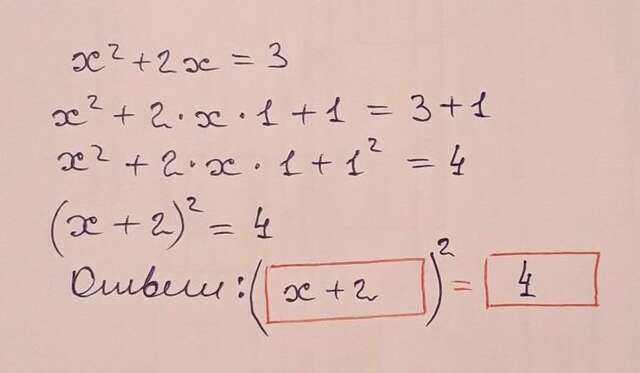 x² + 2x = 3
x² + 2·x·1 + 1 = 3 + 1
x² + 2·x·1 + 1² = 4
(x + 2)² = 4
Ответ: (x + 2)² = 4